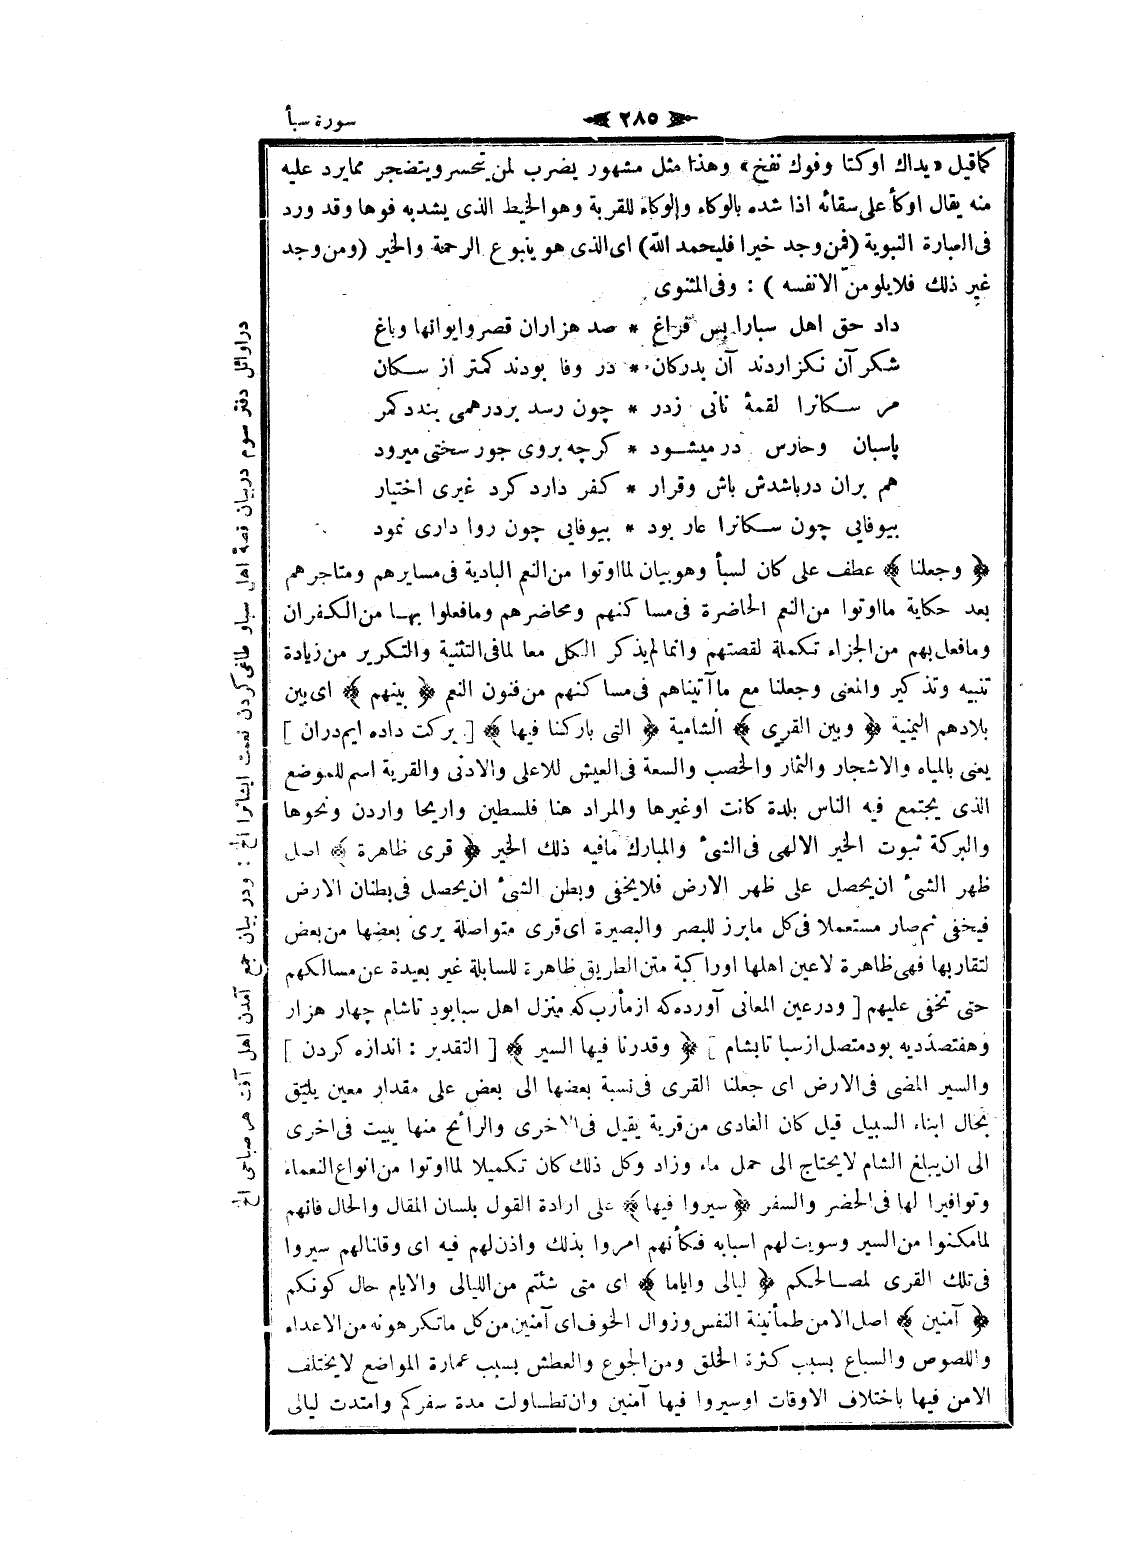 سورة سبأ
٢٨٥
كماقيل «يداك اوكتا وفوك نفخ» وهذا مثل مشهور يضرب لمن يتحسر ويتضجر ممايرد عليه
منه يقال اوكأ على سقائه اذا شده بالوكاء والوكاء للقربة وهو الخيط الذى يشد به فوها وقد ورد
فى العبارة النبوية (فمن وجد خيرا فليحمد الله) اى الذى هو ينبوع الرحمة والخير (ومن وجد
غير ذلك فلايلومنّ الانفسه ) : وفى المثنوى
داد حق اهل سبارا بس فراغ * صد هزاران قصر وايوانها وباغ
شكر آن نكزاردند آن بدركان * در وفا بودند كمتر از سـكان
مر سـكانرا لقمۀ نانى زدر * چون رسد بردرهمى بندد كمر
پاسبان وحارس در ميشـود * كرچه بروى جور سختى ميرود
هم بران در باشدش باش وقرار * كفر دارد كرد غيرى اختيار
بيوفايى چون سـكانرا عار بود * بيوفايى چون روا دارى نمود
﴿ وجعلنا ﴾ عطف على كان لسبأ وهو بيان لمااوتوا من النعم البادية فى مسايرهم ومتاجرهم
بعد حكاية مااوتوا من النعم الحاضرة فى مساكنهم ومحاضرهم ومافعلوا بهـا من الكفران
ومافعل بهم من الجزاء تكملة لقصتهم وانما لم يذكر الكل معا لمافى التثنية والتكرير من زيادة
تنبيه وتذكير والمعنى وجعلنا مع ماآتيناهم فى مساكنهم من فنون النعم ﴿ بينهم ﴾ اى بين
بلادهم اليمنية ﴿ وبين القرى ﴾ الشامية ﴿ التى باركنا فيها ﴾ [ بركت داده ايم دران ]
يعنى بالمياه والاشجار والثمار والخصب والسعة فى العيش للاعلى والادنى والقرية اسم للموضع
الذى يجتمع فيه الناس بلدة كانت اوغيرها والمراد هنا فلسطين واريحا واردن ونحوها
والبركة ثبوت الخير الالهى فى الشئ والمبارك مافيه ذلك الخير ﴿ قرى ظاهرة ﴾ اصل
ظهر الشئ ان يحصل على ظهر الارض فلايخفى وبطن الشئ ان يحصل فى بطنان الارض
فيخفى ثم صار مستعملا فى كل مابرز للبصر والبصيرة اى قرى متواصلة يرى بعضها من بعض
لتقاربها فهى ظاهرة لاعين اهلها اوراكبة متن الطريق ظاهرة للسابلة غير بعيدة عن مسالكهم
حتى تخفى عليهم [ ودر عين المعانى آورده كه از مأرب كه منزل اهل سبا بود تاشام چهار هزار
وهفتصد ديه بود متصل از سبا تابشام ] ﴿ وقدرنا فيها السير ﴾ [ التقدير : اندازه كردن ]
والسير المضى فى الارض اى جعلنا القرى فى نسبة بعضها الى بعض على مقدار معين يليق
بحال ابناء السبيل قيل كان الغادى من قرية يقيل فى الاخرى والرائح منها يبيت فى اخرى
الى ان يبلغ الشام لايحتاج الى حمل ماء وزاد وكل ذلك كان تكميلا لمااوتوا من انواع النعماء
وتوافيرا لها فى الحضر والسفر ﴿ سيروا فيها ﴾ على ارادة القول بلسان المقال والحال فانهم
لمامكنوا من السير وسويت لهم اسبابه فكأنهم امروا بذلك واذن لهم فيه اى وقلنا لهم سيروا
فى تلك القرى لمصـالحكم ﴿ ليالى واياما ﴾ اى متى شئتم من الليالى والايام حال كونكم
﴿ آمنين ﴾ اصل الامن طمأنينة النفس وزوال الخوف اى آمنين من كل ماتكرهونه من الاعداء
واللصوص والسباع بسبب كثرة الخلق ومن الجوع والعطش بسبب عمارة المواضع لايختلف
الامن فيها باختلاف الاوقات اوسيروا فيها آمنين وان تطـاولت مدة سفركم وامتدت ليالى
در اوائل دفتر سوم در بيان قصۀ اهل سبا وطاغى كردن نعمت ايشانرا الخ : ودر بيان جمع آمدن اهل آفت هر صباحى الخ